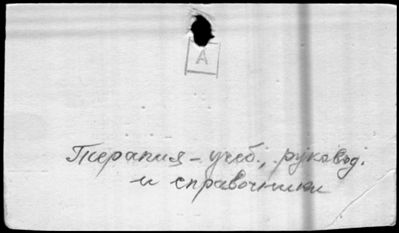 А
Терапия – учеб., руковод.
и справочники